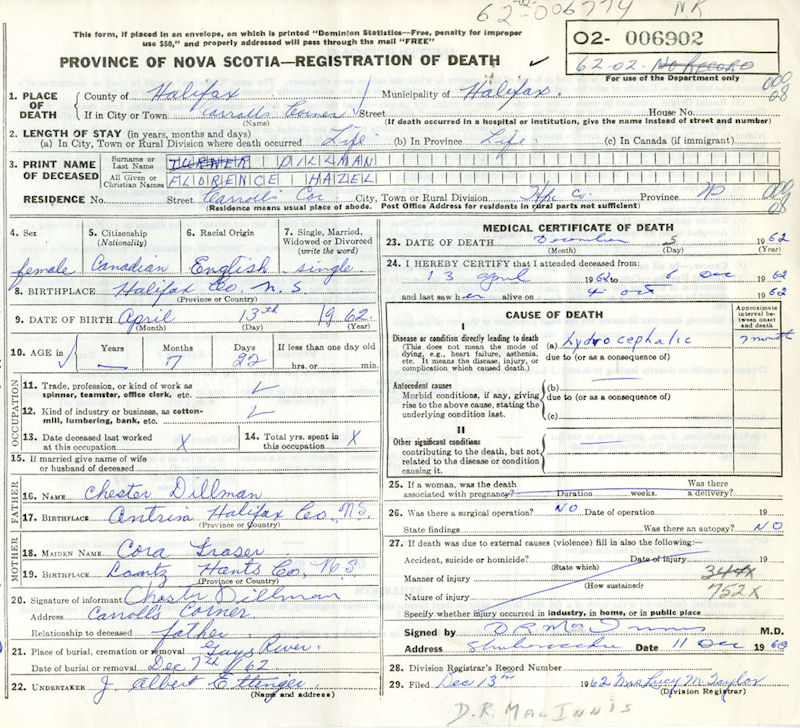 62-006774 N R
This form, if placed in an envelope, on which is printed "Dominion Statistics—Free, penalty for improper
use $50," and properly addressed will pass through the mail "FREE"
O2- 006902
62-02- No Record
For use of the Department only
PROVINCE OF NOVA SCOTIA—REGISTRATION OF DEATH
1. PLACE OF DEATH County of Halifax Municipality of Halifax.
If in City or Town Carrolls Corner Street House No.
(Name) (If death occurred in a hospital or institution, give the name instead of street and number)
2. LENGTH OF STAY (in years, months and days)
(a) In City, Town or Rural Division where death occurred Life (b) In Province Life (c) In Canada (if immigrant)
3. PRINT NAME OF DECEASED Surname or Last Name TURNER DILLMAN
All Given or Christian Names FLORENCE HAZEL
RESIDENCE No. Street Carrolls Cor City, Town or Rural Division Hfx Co. Province
(Residence means usual place of abode. Post Office Address for residents in rural parts not sufficient)
4. Sex 5. Citizenship (Nationality) 6. Racial Origin 7. Single, Married, Widowed or Divorced (write the word)
female Canadian English single
8. BIRTHPLACE Halifax Co. N.S
(Province or Country)
9. DATE OF BIRTH April 13th 1962.
(Month) (Day) (Year)
10. AGE in Years Months Days If less than one day old
— 7 22 hrs. or min.
OCCUPATION
11. Trade, profession, or kind of work as
spinner, teamster, office clerk, etc.
12. Kind of industry or business, as cotton-
mill, lumbering, bank, etc.
13. Date deceased last worked at this occupation X 14. Total yrs. spent in this occupation X
15. If married give name of wife
or husband of deceased
FATHER
16. NAME Chester Dillman
17. BIRTHPLACE Antrim Halifax Co., N.S.
(Province or Country)
MOTHER
18. MAIDEN NAME Cora Fraser
19. BIRTHPLACE Lantz Hants Co., N.S.
(Province or Country)
20. Signature of informant Chester Dillman
Address Carrolls Corner
Relationship to deceased father
21. Place of burial, cremation or removal Gays River.
Date of burial or removal Dec 7th /62
22. UNDERTAKER J. Albert Ettinger.
(Name and address)
MEDICAL CERTIFICATE OF DEATH
23. DATE OF DEATH December 5 1962
(Month) (Day) (Year)
24. I HEREBY CERTIFY that I attended deceased from:
13 April 1962 to 6 Dec 1962
and last saw her alive on 4 Oct 1962
CAUSE OF DEATH
Approximate interval between onset and death
I
Disease or condition directly leading to death (a) hydrocephalic 7 month
(This does not mean the mode of due to (or as a consequence of)
dying, e.g., heart failure, asthenia,
etc. It means the disease, injury, or
complication which caused death.)
Antecedent causes (b)
Morbid conditions, if any, giving due to (or as a consequence of)
rise to the above cause, stating the
underlying condition last. (c)
II
Other significant conditions
contributing to the death, but not
related to the disease or condition
causing it.
25. If a woman, was the death Was there
associated with pregnancy? Duration weeks. a delivery?
26. Was there a surgical operation? NO Date of operation 19
State findings Was there an autopsy? NO
27. If death was due to external causes (violence) fill in also the following:—
Accident, suicide or homicide? Date of injury 19
(State which)
Manner of injury 344X
(How sustained)
Nature of injury 752X
Specify whether injury occurred in industry, in home, or in public place
Signed by D R MacInnis M.D.
Address Date 11 Dec 1962
28. Division Registrar's Record Number
29. Filed Dec 13th 1962 Mrs Lucy M. Taylor
(Division Registrar)
D.R. MACINNIS